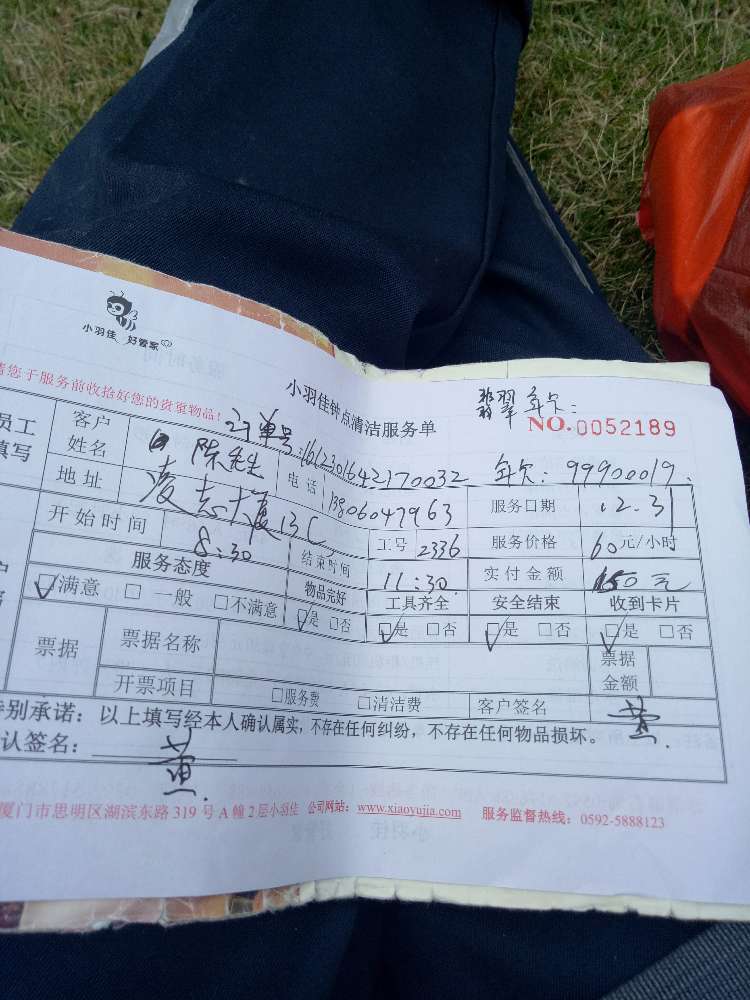 小羽佳 好管家
请您于服务前收拾好您的贵重物品!
小羽佳钟点清洁服务单
翡翠年欠:
NO.0052189
订单号:1612301642170032 年欠:99900019.
员工
填写
客户姓名 陈先生 电话 13806047963 服务日期 12.31
地址 凌志大厦13C 工号 2336 服务价格 60元/小时
开始时间 8:30 结束时间 11:30 实付金额 150元
服务态度 物品完好 工具齐全 安全结束 收到卡片
☑满意 □一般 □不满意 ☑是 □否 ☑是 □否 ☑是 □否 ☑是 □否
票据 票据名称 票据金额
开票项目 □服务费 □清洁费 客户签名 黄
特别承诺:以上填写经本人确认属实,不存在任何纠纷,不存在任何物品损坏。
确认签名: 黄
厦门市思明区湖滨东路319号A幢2层小羽佳 公司网站:www.xiaoyujia.com 服务监督热线:0592-5888123